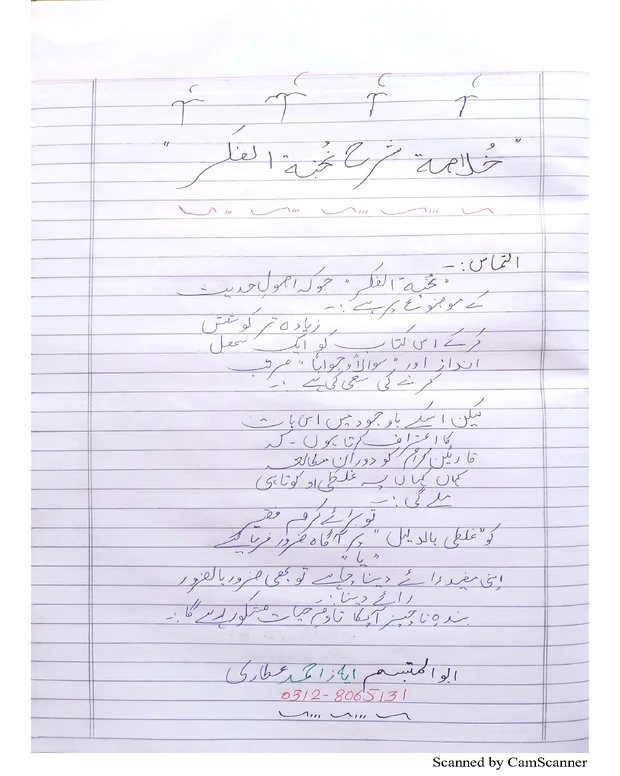 "خُلاصة شرح نُخبة الفکر"
التماس:۔
"نُخبة الفکر" جوکہ اصولِ حدیث
کے موضوع پر ہے:۔
زیادہ تر کوشش
کرکے اس کتاب کو ایک سھل
انداز اور "سوالاً و جواباً" مرتب
کرنے کی سعی کی ہے:۔
لیکن اسکے باوجود میں اس بات
کا اعتراف کرتا ہوں۔ کہ
قارئین کرام کو دوران مطالعہ
کہاں کہاں پہ غلطی او کوتاہی
ملے گی:۔
تو برائے کرم فقیر
کو "غلطی بالدلیل" پر آگاہ ضرور فرمائیے
"یا"
اپنی مفید رائے دینا چاہے تو بھی ضرور بالضرور
رائے دینا:۔
بندہ ناچیز آپکا تادم حیات مشکور رہے گا:۔
ابو المتبسم ایاز احمد عطاری
0312-8065131
Scanned by CamScanner